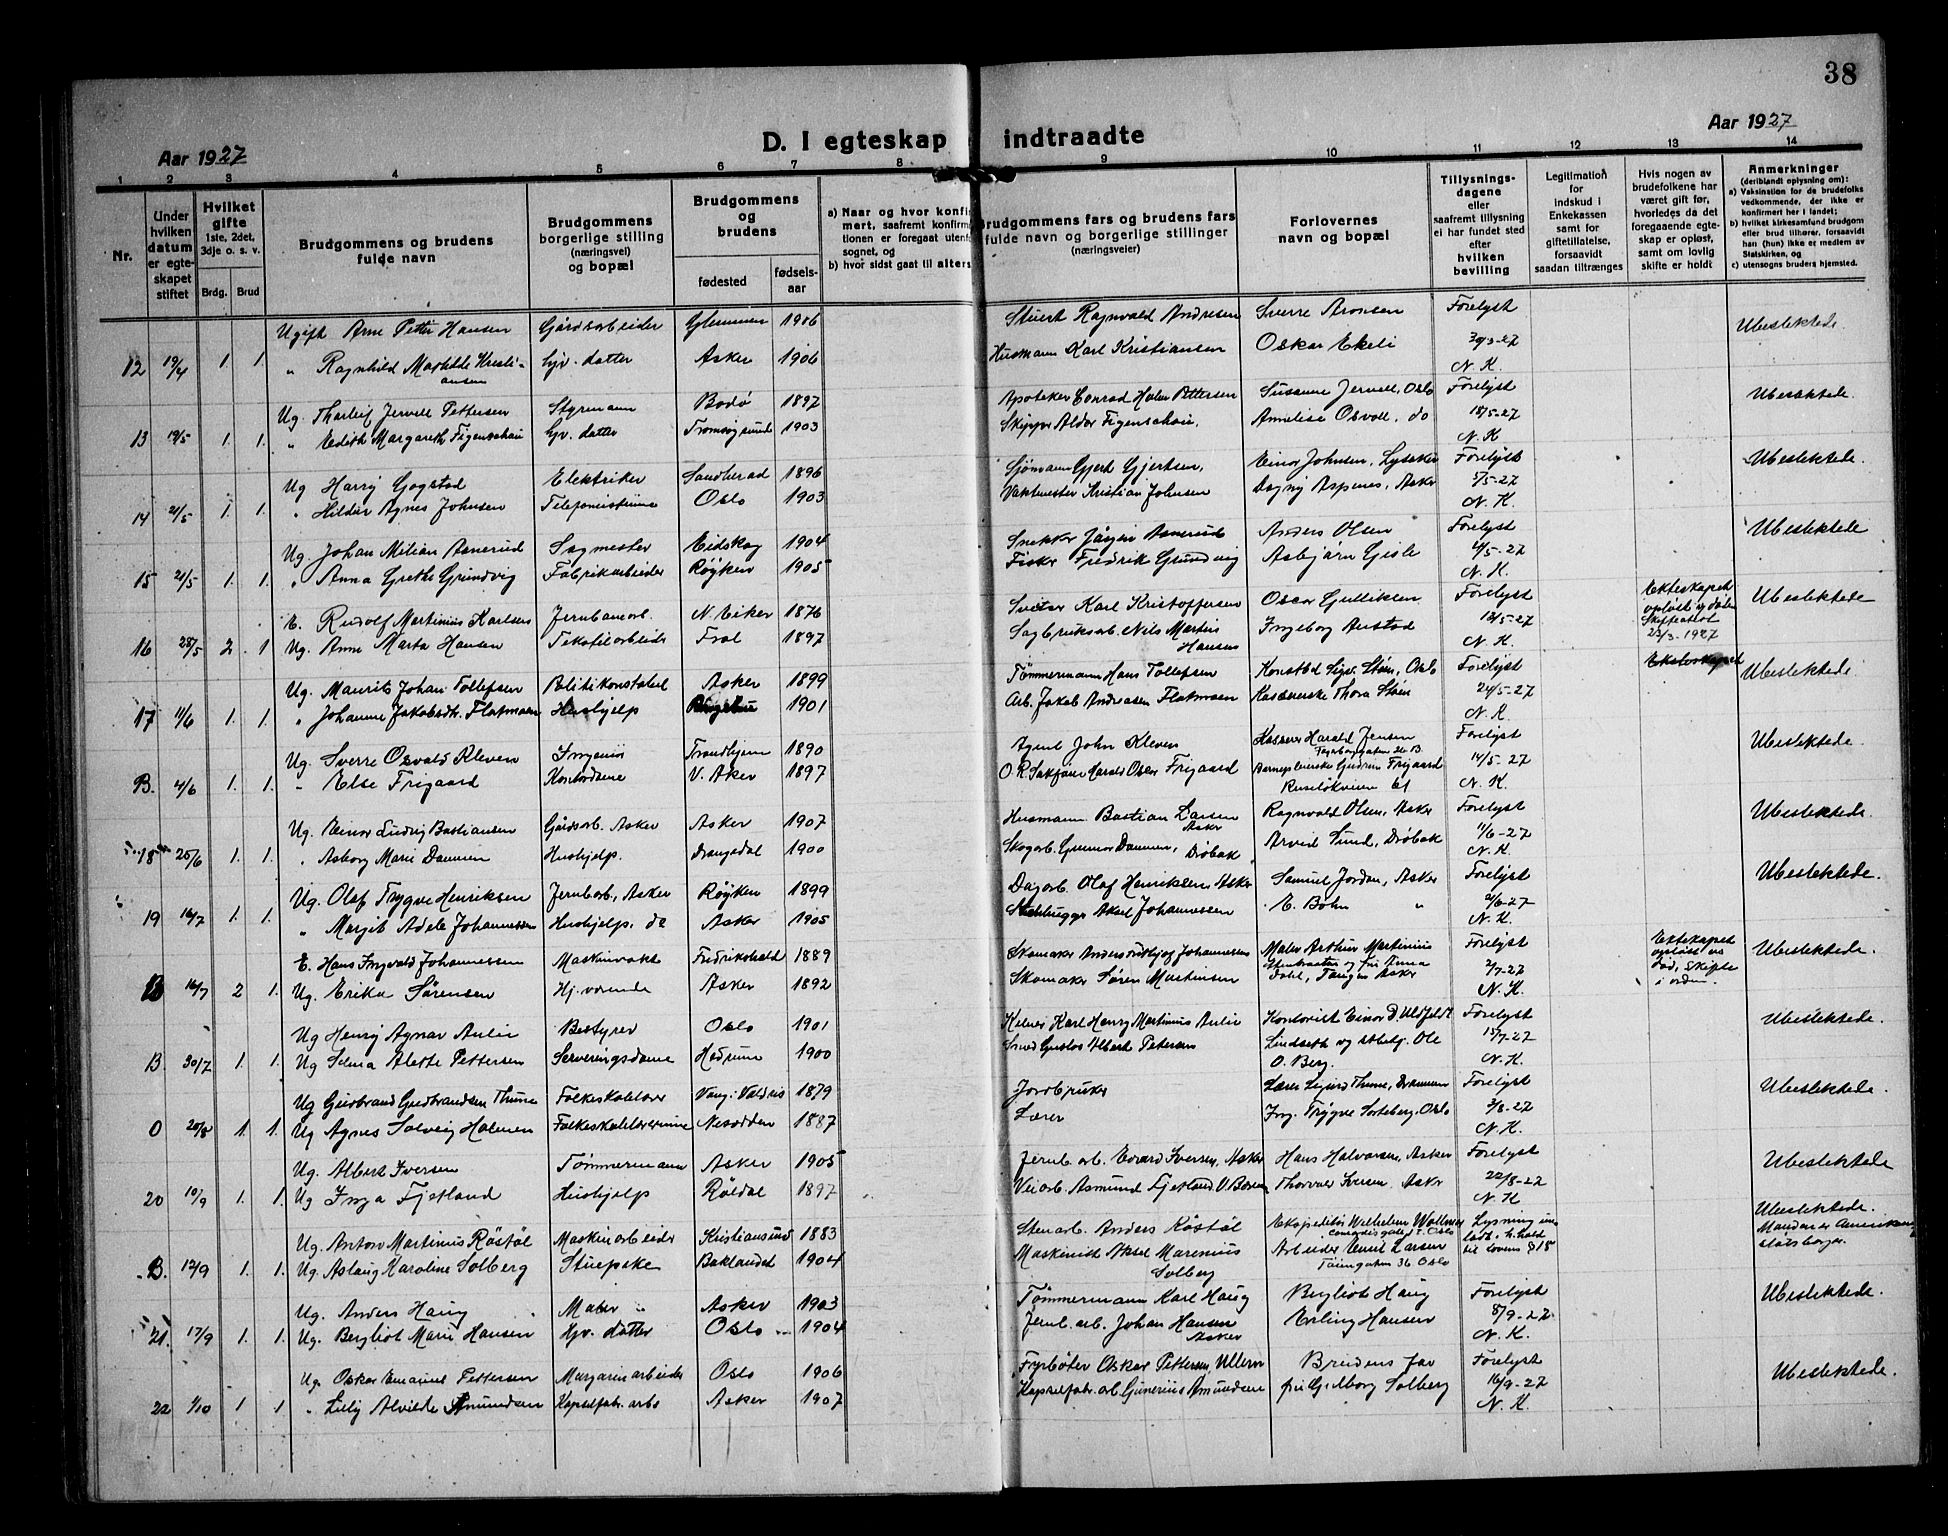 38
Aar 1927
D. I egteskap indtraadte
Aar 1927
1 2 3 4 5 6 7 8 9 10 11 12 13 14
Nr.
Under hvilken datum er egteskapet stiftet
Hvilket gifte 1ste, 2det, 3dje o. s. v.
Brdg. Brud
Brudgommens og brudens fulde navn
Brudgommens borgerlige stilling (næringsvei) og bopæl
Brudgommens og brudens
fødested
fødselsaar
a) Naar og hvor konfirmert, saafremt konfirmationen er foregaat utenfor sognet, og
b) hvor sidst gaat til alters
Brudgommens fars og brudens fars fulde navn og borgerlige stillinger (næringsveier)
Forlovernes navn og bopæl
Tillysningsdagene eller saafremt tillysning ei har fundet sted efter hvilken bevilling
Legitimation for indskud i Enkekassen samt for giftetillatelse, forsaavidt saadan tiltrænges
Hvis nogen av brudefolkene har været gift før, hvorledes da det foregaaende egteskap er opløst, samt om lovlig skifte er holdt
Anmerkninger (deriblandt oplysning om): a) Vaksination for de brudefolks vedkommende, der ikke er konfirmert her i landet; b) hvilket kirkesamfund brudgom eller brud tilhører, forsaavidt han (hun) ikke er medlem av Statskirken, og c) utensogns bruders hjemsted.
Ugift Arne Petter Hansen Gårdsarbeider Glemmen 1906 Stuert Ragnvald Andresen Sverre Aronsen Forelyst Ubeslektede
12 19/4 1. 1. " Ragnhild Mathilde Kristiansen Hjv. datter Asker 1906 Husmann Karl Kristiansen Oskar Ekeli 30/3-27 N. K.
Ug. Tharleif Jervell Pettersen Styrmann Bodø 1897 Apoteker Conrad Holm Pettersen Susanne Jervell, Oslo Forelyst Ubeslektede.
13 19/5 1. 1. " Edith Margareth Figenschau Hjv. datter Tromsøysund 1903 Skipper Aldor Figenschau, Annelise Osvoll, do 18/5-27 N. K
Ug Harry Gogstad Elektriker Sandherad 1896 Sjømann Gjert Gjertsen, Einor Johnsen, Lysaker Forelyst Ubeslektede.
14 21/5 1. 1. " Hildur Agnes Johnsen Telefonistinne Oslo 1903 Vaktmester Kristian Johnsen Dagny Aspenes, Asker 5/5-27 N. K.
Ug. Johan Milian Asnerud Sagmester Eidskog 1904 Snekker Jörgen Asnerud Anders Olsen Forelyst Ubeslektede
15 21/5 1. 1. " Anna Grethe Grundvig Fabrikarbeider Røyken 1905 Fisker Fredrik Grundvig Asbjørn Gisle 4/5-27 N. K.
E. Rudolf Martinius Karlsen Jernbanearb. N. Eiker 1876 Sveiser Karl Kristoffersen Oscar Gulliksen Forelyst Ekteskapet opløst v døden Skifteattest 22/3-1927 Ubeslektede
16 28/5 2. 1 Ug. Anne Marta Hansen Tekstilarbeider Frol 1897 Sagbruksarb. Nils Martin Hansen Ingeborg Austad 12/5-27 N. K.
Ug. Maurits Johan Tollefsen Politikonstabel Asker 1899 Tømmermann Hans Tollefsen Konstbl Sigv. Støen, Oslo Forelyst Ubeslektede
17 11/6 1. 1. " Johanne Jakobsdtr. Flatmoen Hushjelp 1901 Arb. Jakob Andreasen Flatmoen Kasererske Thora Støen 24/5-27 N. K.
Ug. Sverre Osvald Kleven Ingeniør Trondhjem 1890 Agent John Kleven Kasserer Harald Jensen Fagerborggaten 26 B. Forelyst Ubeslektede
B. 4/6 1. 1. " Else Frigaard Kontordame V. Aker 1897 O.R. Sakfører Harald Oskar Frigaard Barnepleierske Gudrun Frigaard Ruseløkveien 61 14/5-27 N. K.
Ug. Einar Ludvig Bastiansen Gårdsarb. Asker Asker 1907 Husmann Bastian Larsen Asker Ragnvald Olsen, Asker Forelyst Ubeslektede.
18 25/6 1. 1. " Asborg Marie Dammen Hushjelp. Drangedal 1900 Skogarb. Gunnar Dammen, Drøbak Arvid Lund, Drøbak 11/6-27 N. K.
Ug. Olaf Trygve Henriksen Jernb.arb., Asker Røyken 1899 Dagarb. Olaf Henriksen, Asker Samuel Jordan, Asker Forelyst Ubeslektede.
19 16/7 1. 1. " Margit Adele Johannessen Hushjelp, do Asker 1905 Aksel Johannessen E. Bøhn " 2/6-27 N. K.
E. Hans Ingvald Johannessen Maskinvakt Fredrikshald 1889 Skomaker Anders Johannessen Maler Arthur Martinius Forelyst Ekteskapet opløst ve død, skifte i orden. Ubeslektede.
B 16/7 2 1. Ug. Erika Sørensen Hj. værende Asker 1892 Skomaker Søren Martinsen og fru Anna Dahl, Tangen Asker 2/7-27 N. K.
Ug Henry Agnar Aulie Bestyrer Oslo 1901 Kelner Karl Henry Martinius Aulie Kontorist Einar D. Forelyst Ubeslektede.
B. 30/7 1. 1. Ug Selma Alette Pettersen Serveringsdame Hedrum 1900 Smed Gustav Albert Petersen Lindseth og Ole O. Berg. 15/7-27 N. K.
Ug Gudbrand Gudbrandsen Thune Folkeskolelærer Vang i Valdres 1879 Jordbruker Lærer Sigurd Thune, Drammen Forelyst Ubeslektede.
O 20/8 1. 1. Ug Agnes Solveig Holmen Folkeskolelærerinne Nesodden 1887 Lærer Ing. Trygve Sorteberg, Oslo 3/8-27 N. K.
Ug. Albert Iversen Tømmermann Asker 1905 Jernb. arb. Edvard Iversen, Asker Hans Halvorsen, Asker Forelyst Ubeslektede
20 10/9 1. 1. Ug Inga Fjetland Hushjelp Røldal 1897 Veiarb. Asmund Fjetland V. Bærum Thorvald Iversen Asker 22/8-27 N. K
Ug. Anton Martinius Røstøl Maskinarbeider Kristiansund 1883 Stenarb. Anders Røstøl Ekspeditør Wilhelm Wollner Oslo Lysning unlatt i h. hold til lovens § 18 Ubeslektede. Manden er Amerikansk statsborger.
B. 12/9 1. 1. Ug. Aslaug Karoline Solberg Stuepike Baklandet 1904 Maskinist Aksel Marenius Solberg Arbeider Emil Larsen Tøiengaten 36 Oslo
Ug. Anders Haug Maler Asker 1903 Tømmermann Karl Haug Bergliot Haug Forelyst Ubeslektede.
21. 17/9 1. 1. Ug. Bergliot Marie Hansen Hjv. datter Oslo 1904 Jernb. arb. Johan Hansen Asker Erling Hansen 8/9-27 N. K.
Ug. Oskar Emanuel Pettersen Margarinarbeider Oslo 1906 Fyrbøter Oskar Pettersen, Ullern Brudens far Forelyst Ubeslektede.
22 1/10 1 1 " Lilly Alvilde Amundsen Kapselfabr. arb. Asker 1907 Kapselfabr. arb Gunerius Amundsen fru Gudborg Solberg 16/9-27 N. K.